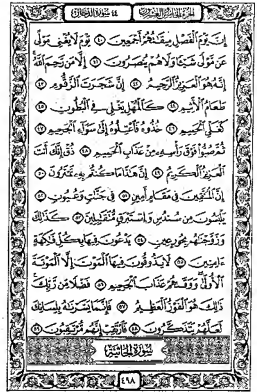 ٤٤ سورة الدخان
إِنَّ يَوْمَ ٱلْفَصْلِ مِيقَٰتُهُمْ أَجْمَعِينَ ٤٠ يَوْمَ لَا يُغْنِى مَوْلًى
عَن مَّوْلًى شَيْـًٔا وَلَا هُمْ يُنصَرُونَ ٤١ إِلَّا مَن رَّحِمَ ٱللَّهُ
إِنَّهُۥ هُوَ ٱلْعَزِيزُ ٱلرَّحِيمُ ٤٢ إِنَّ شَجَرَتَ ٱلزَّقُّومِ ٤٣
طَعَامُ ٱلْأَثِيمِ ٤٤ كَٱلْمُهْلِ يَغْلِى فِى ٱلْبُطُونِ ٤٥
كَغَلْىِ ٱلْحَمِيمِ ٤٦ خُذُوهُ فَٱعْتِلُوهُ إِلَىٰ سَوَآءِ ٱلْجَحِيمِ ٤٧
ثُمَّ صُبُّوا۟ فَوْقَ رَأْسِهِۦ مِنْ عَذَابِ ٱلْحَمِيمِ ٤٨ ذُقْ إِنَّكَ أَنتَ
ٱلْعَزِيزُ ٱلْكَرِيمُ ٤٩ إِنَّ هَٰذَا مَا كُنتُم بِهِۦ تَمْتَرُونَ ٥٠
إِنَّ ٱلْمُتَّقِينَ فِى مَقَامٍ أَمِينٍ ٥١ فِى جَنَّٰتٍ وَعُيُونٍ ٥٢
يَلْبَسُونَ مِن سُندُسٍ وَإِسْتَبْرَقٍ مُّتَقَٰبِلِينَ ٥٣ كَذَٰلِكَ
وَزَوَّجْنَٰهُم بِحُورٍ عِينٍ ٥٤ يَدْعُونَ فِيهَا بِكُلِّ فَٰكِهَةٍ
ءَامِنِينَ ٥٥ لَا يَذُوقُونَ فِيهَا ٱلْمَوْتَ إِلَّا ٱلْمَوْتَةَ
ٱلْأُولَىٰ وَوَقَىٰهُمْ عَذَابَ ٱلْجَحِيمِ ٥٦ فَضْلًا مِّن رَّبِّكَ
ذَٰلِكَ هُوَ ٱلْفَوْزُ ٱلْعَظِيمُ ٥٧ فَإِنَّمَا يَسَّرْنَٰهُ بِلِسَانِكَ
لَعَلَّهُمْ يَتَذَكَّرُونَ ٥٨ فَٱرْتَقِبْ إِنَّهُم مُّرْتَقِبُونَ ٥٩
سُورَةُ الجَاثِيَةِ
٤٩٨